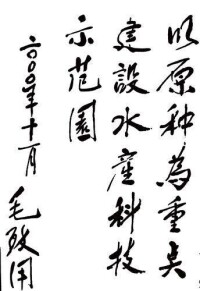 以原种為重点
建設水産科技
示范園
二〇〇〇年十一月
毛致用